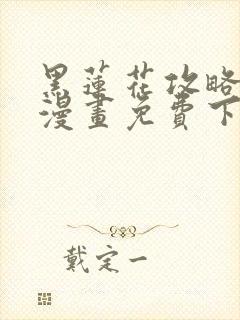 黑蓮花攻略
漫畫免費下
戴定一